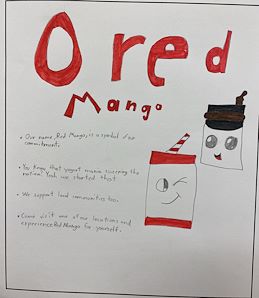 Ored
Mango
• Our name, Red Mango, is a symbol for our
commitment.
• You know that yogurt mania sweeping the
nation? Yeah we started that
• We support local communities too.
• Come visit one of our locations and
experience Red Mango for yourself.